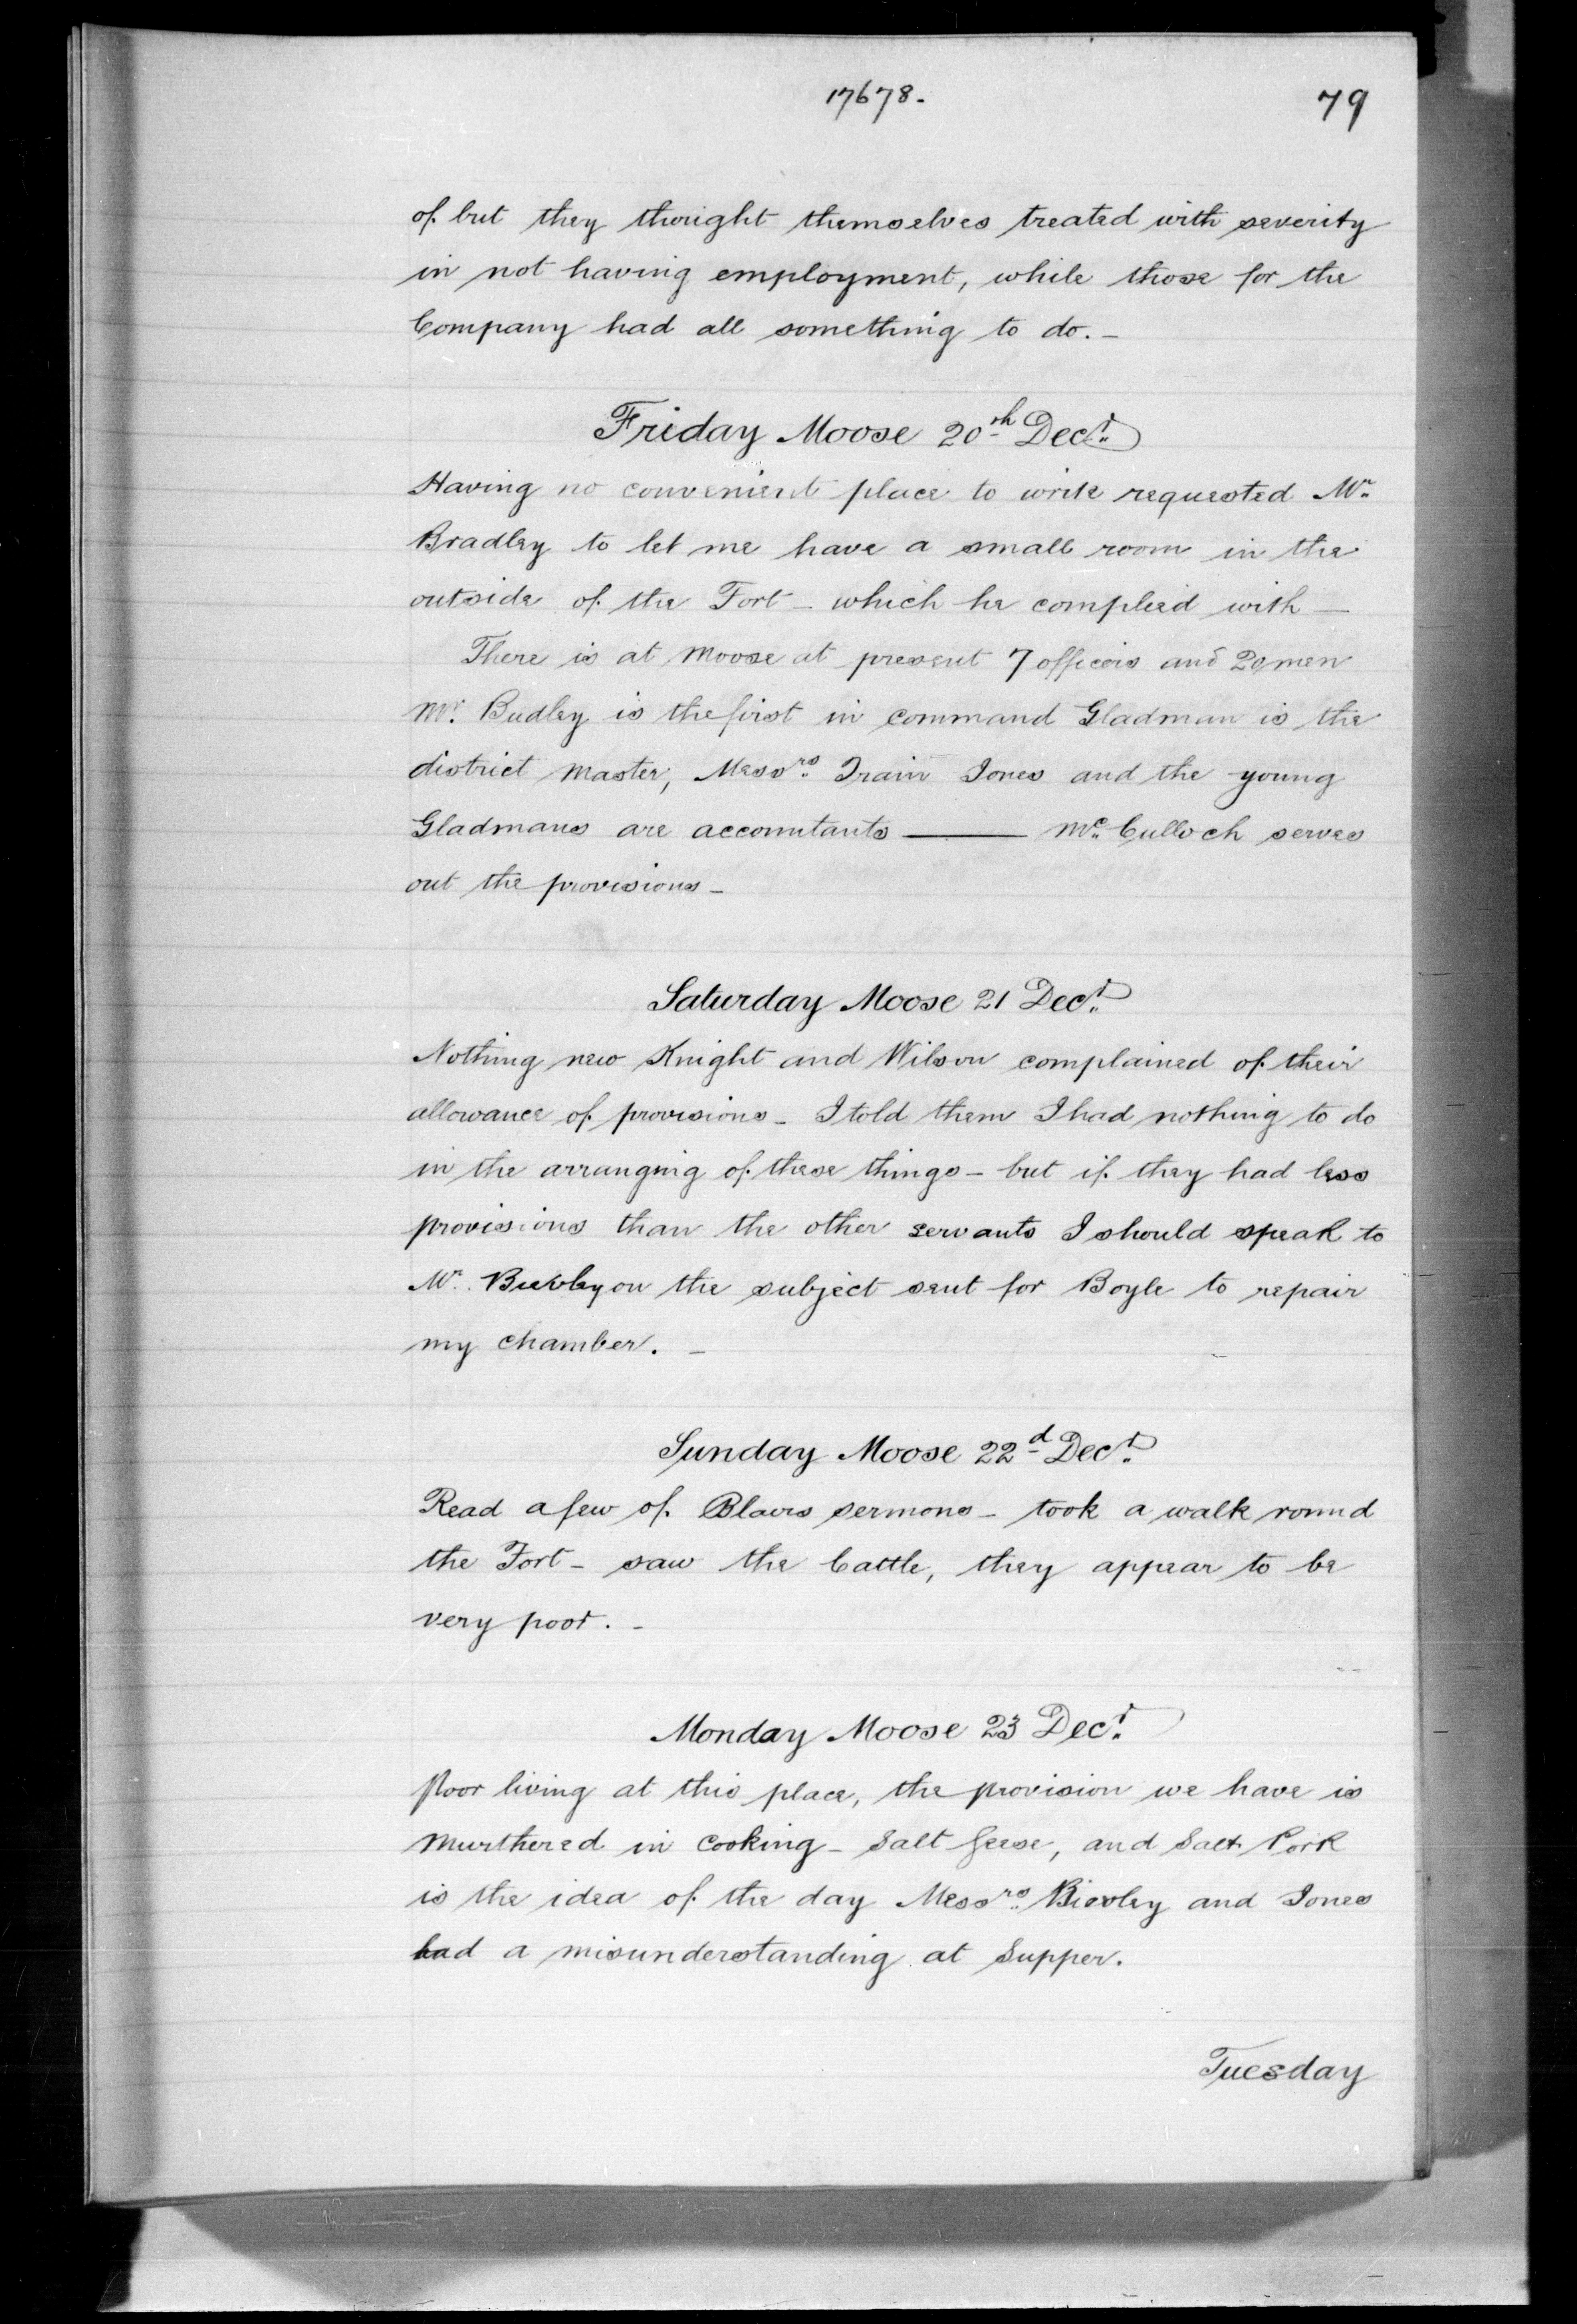 17678.
79
of but they thought themselves treated with severity
in not having employment, while those for the
Company had all something to do. –
Friday Moose 20th Decr.
Having no convenient place to write requested Mr.
Bradley to let me have a small room in the
outside of the Fort – which he complied with —
There is at Moose at present 7 officers and 20 men
Mr. Budley is the first in command Gladman is the
district Master, Messrs. Train Jones and the young
Gladmans are accountants ——— Mc. Culloch serves
out the provisions –
Saturday Moose 21 Decr.
Nothing new Knight and Wilson complained of their
allowance of provisions – I told them I had nothing to do
in the arranging of these things – but if they had less
provisions than the other servants I should speak to
Mr. Bievley on the subject sent for Boyle to repair
my chamber. –
Sunday Moose 22d Decr.
Read a few of Blairs sermons – took a walk round
the Fort – saw the Cattle, they appear to be
very poor. –
Monday Moose 23 Decr.
Poor living at this place, the provision we have is
Murthered in Cooking – Salt Geese, and Salt Pork
is the idea of the day Messrs. Bievley and Jones
had a misunderstanding at Supper.
Tuesday